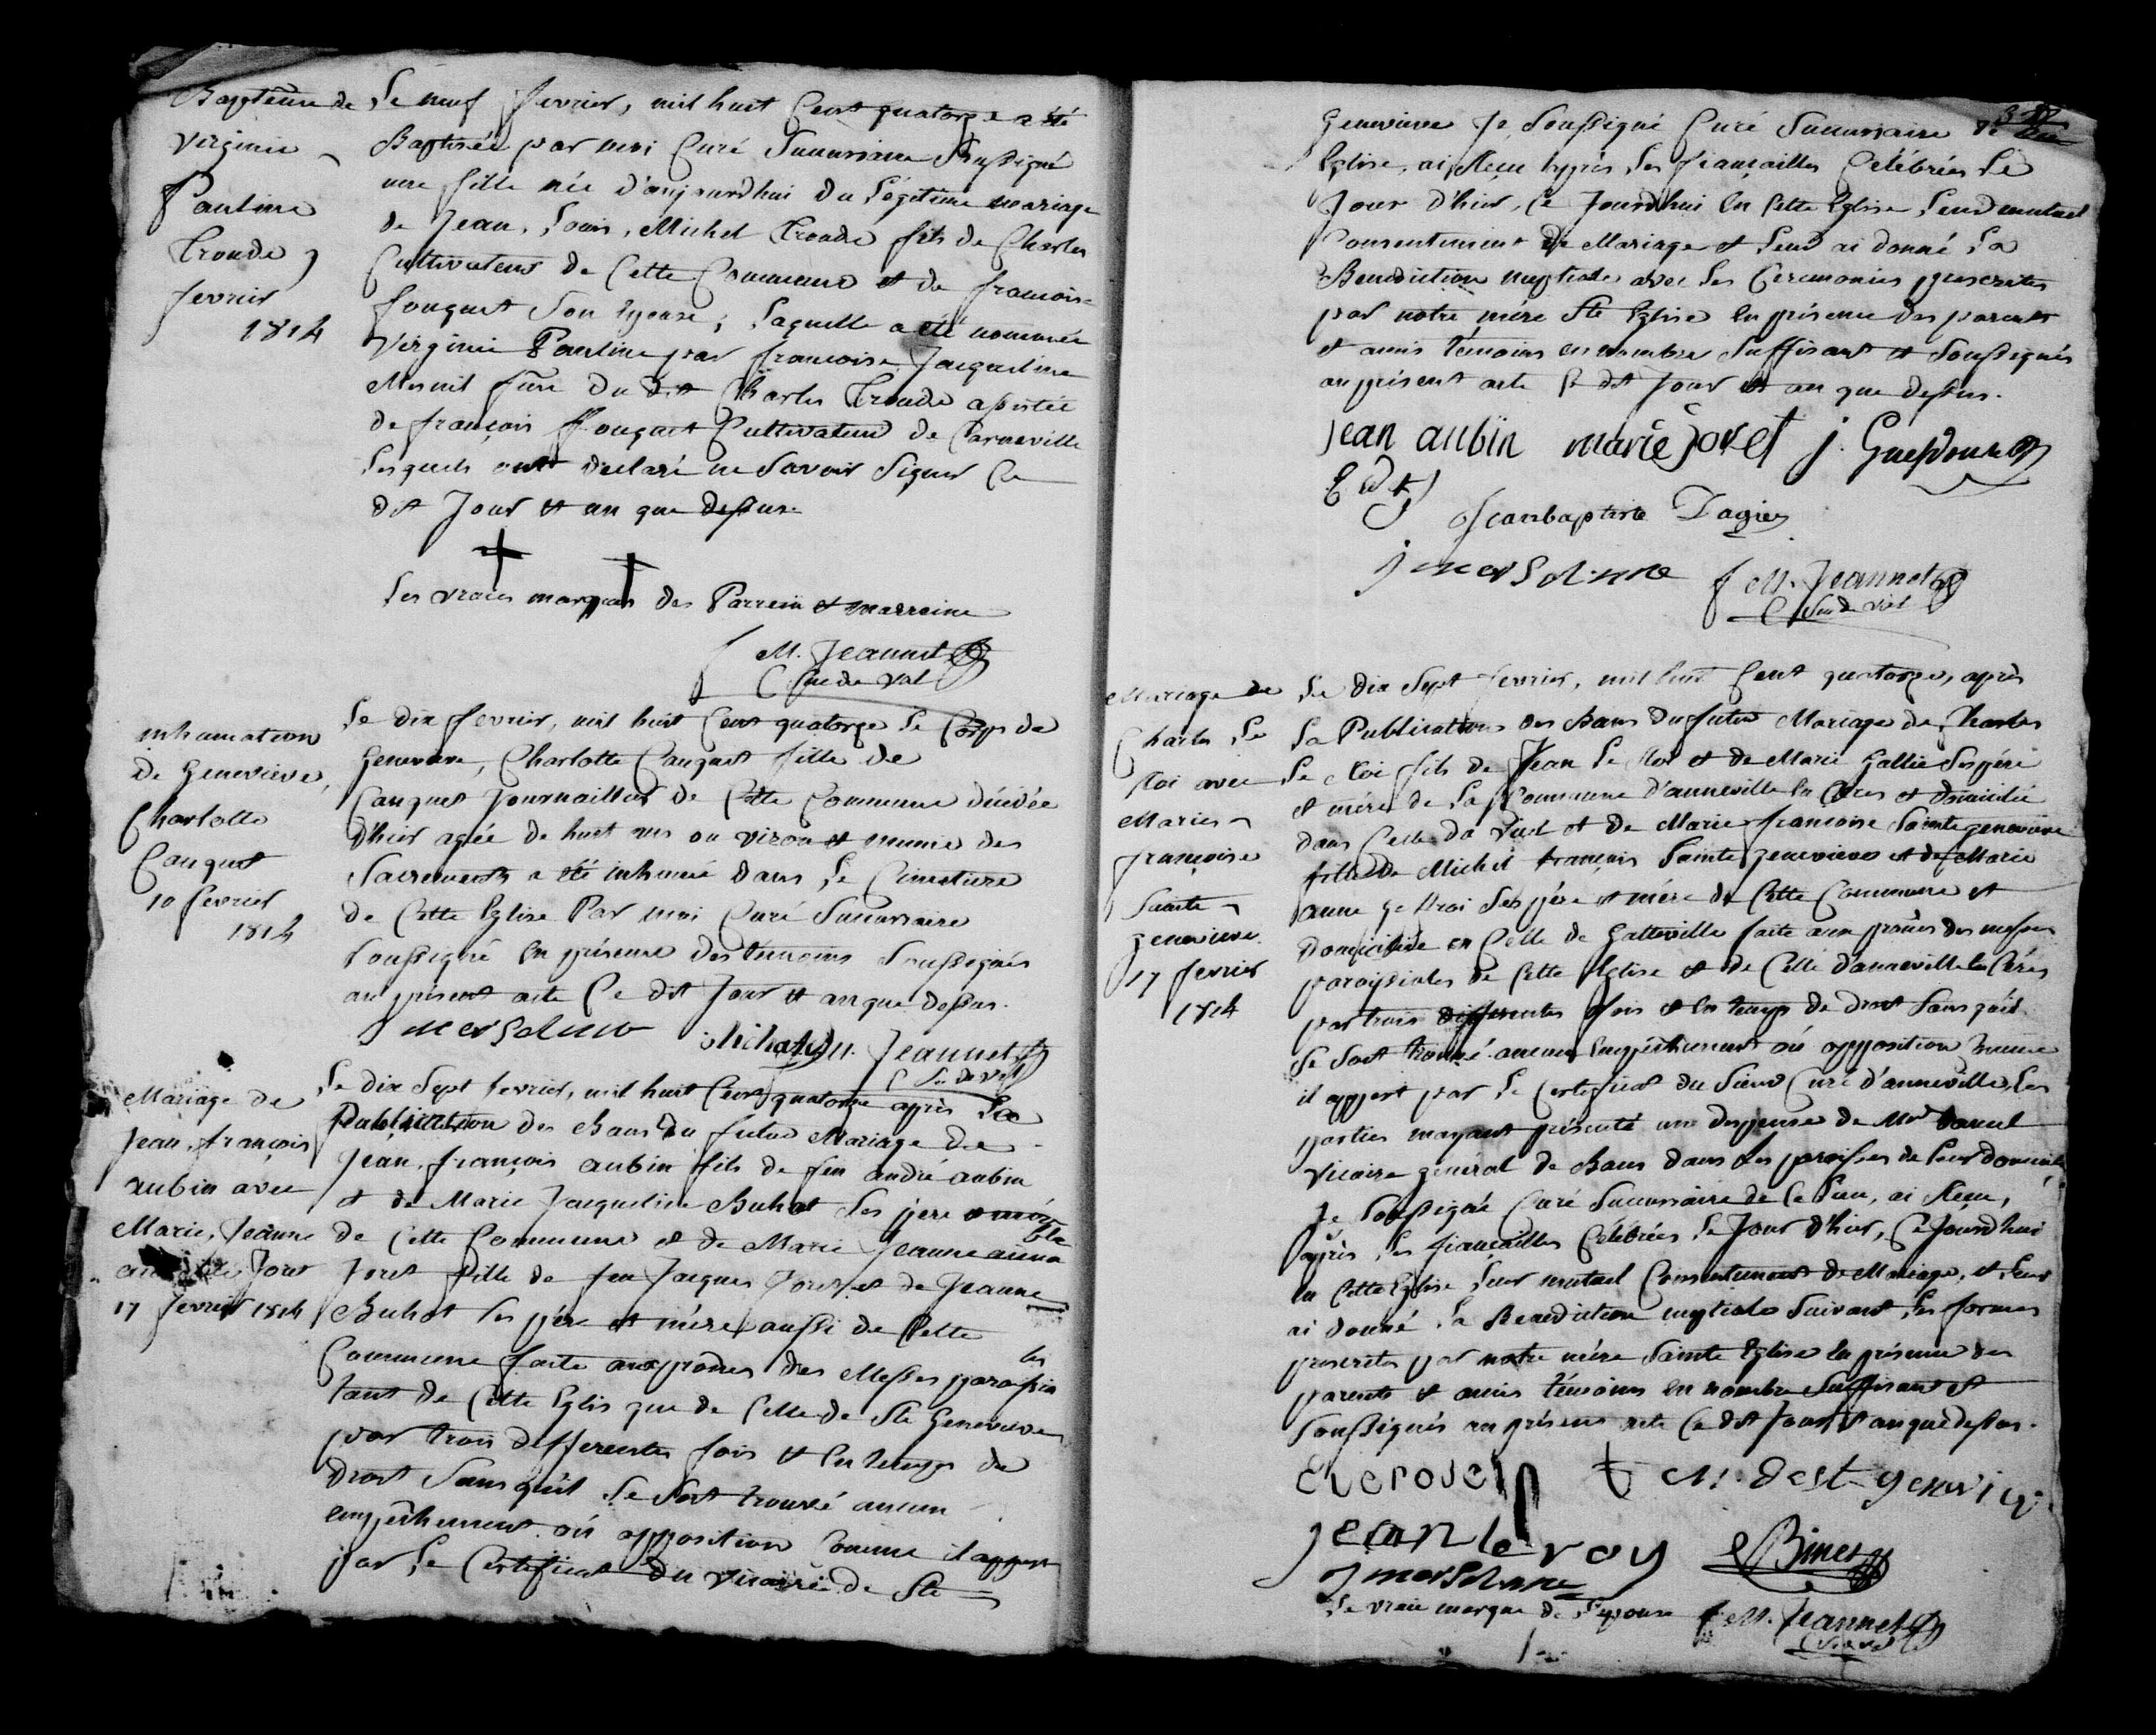 Baptême de
Virginie
Pauline
Troude
fevrier
1814
Le neuf fevrier, mil huit Cent quatorze a été
Baptisée par moi Curé Succursaire Soussigné
une fille née d'aujourdhui du Légitime mariage
de Jean, Louis, Michel Troude fils de Charles
Cultivateur de Cette Commune et de francoise
fouquet Son Epouse; Laquelle a été nommée
Virginie Pauline par francoise Jacqueline
Mesnil fme du dit Charles Troude assistée
de françois fouquet Cultivateur de Carneville
Lesquels ont declaré ne Savoir Signer Ce
dit Jour et an que dessus.
Les vraies marques des Parrein et marreine
M. Jeannet
inhumation
de Geneviève,
Charlotte
Cauquet
10 fevrier
1814
Le dix fevrier, mil huit Cent quatorze Le Corps de
Genevieve, Charlotte Cauquet fille de
Cauquet Journaillier de Cette Commune décédée
d'hier agée de huit ans ou viron et munie des
Sacrements a été inhumé dans Le Cimetiere
de Cette Eglise Par moi Curé Succursaire
Soussigné En présence des temoins Soussignés
au présent acte Ce dit Jour et an que dessus.
Jeannet
Mariage de
Jean, françois
aubin avec
Marie, Jeanne
Joret
17 fevrier 1814
Le dix Sept fevrier, mil huit Cent quatorze après La
Publication des Bans du futur Mariage de
Jean, françois aubin fils de feu andré aubin
et de Marie Jacqueline Buhot Ses père et mère
de Cette Commune et de Marie Jeanne
Joret fille de feu Jacques Joret et de Jeanne
Buhot Ses père et mère aussi de Cette
Commune faite aux prônes des Messes paroissia
les
tant de Cette Eglis que de Celle de Ste Genevieve
par trois differentes fois et En temps de
droit Sans qu'il Se Soit trouvé aucun
empêchement où opposition Comme il appert
par Le Certificat du vicaire de Ste
Genevieve Je Soussigné Curé Succursaire de
Eglise, ai Reçu après Les fiançailles Célébrées Le
Jour d'hier, Ce Jourdhui En Cette Eglise Leur mutuel
Consentement de Mariage et Leur ai donné La
Benediction nuptiale avec Les Ceremonies prescrites
par notre mére Ste Eglise En présence des parents
et amis témoins en nombre Suffisant et Soussignés
au présent acte Ce dit Jour et an que dessus.
jean aubin marie joret j. Guesdon
Jeanbaptiste Dagier
M. Jeannet
Mariage de
Charles Le
Roi avec
Marie
françoise
Sainte
genevieve
17 fevrier
1814
Le dix Sept fevrier, mil huit Cent quatorze, après
La Publication des Bans du futur Mariage de Charles
Le Roi fils de Jean Le Roi et de Marie Gallie Ses pére
et mére de La Commune d'anneville En Céres et domicilié
dans Celle du Vast et de Marie francoise Sainte genevieve
fille de Michel françois Sainte genevieve et de Marie
anne Le Roi Ses pére et mére de Cette Commune et
domiciliée en Celle de Gatteville faite aux prônes des messes
paroissiales de Cette Eglise et de Celle d'anneville En Céres
par trois differentes fois et En temps de droit Sans qu'il
Se Soit trouvé aucun Empêchement où opposition Comme
il appert par Le Certificat du Sieur Curé d'anneville, Les
parties mayant présenté une dispense de Mr
Vicaire général de Bans dans Les paroisses de Leur domicile
Je Soussigné Curé Succursaire de Ce Lieu, ai Reçu,
après Les fiançailles Célébrées Le Jour d'hier, Ce Jourdhui
En Cette Eglise Leur mutuel Consentement de Mariage, et Leur
ai donné La Benediction nuptiale Suivant Les formes
prescrites par notre mére Sainte Eglise En présence des
parents et amis témoins En nombre Suffisant et
Soussignés au présent acte Ce dit Jour et an que dessus.
jean leroy Binet
La vraie marque de L'epouse M. Jeannet